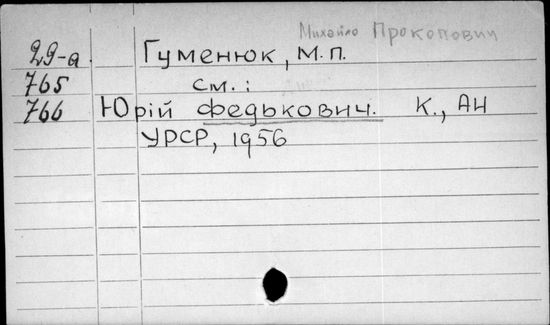 Михайло Прокопович
29-а Гуменюк, М.П.
765 см.:
766 Юрій Федькович. К., АН
УРСР, 1956